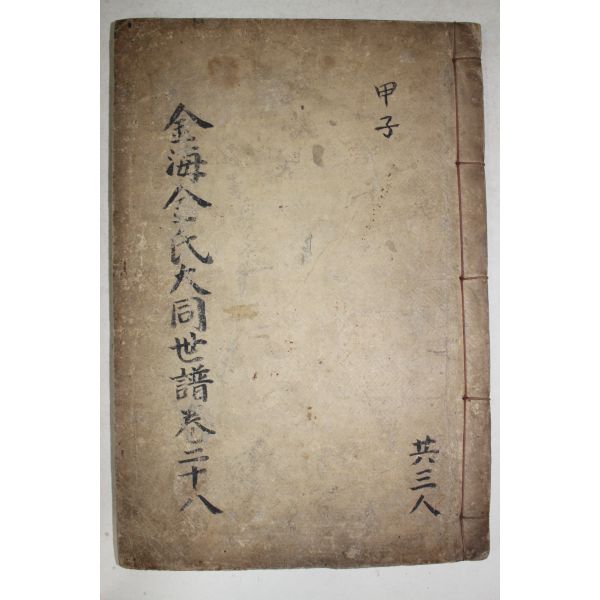 甲子
共三人
金海金氏大同世譜卷二十八